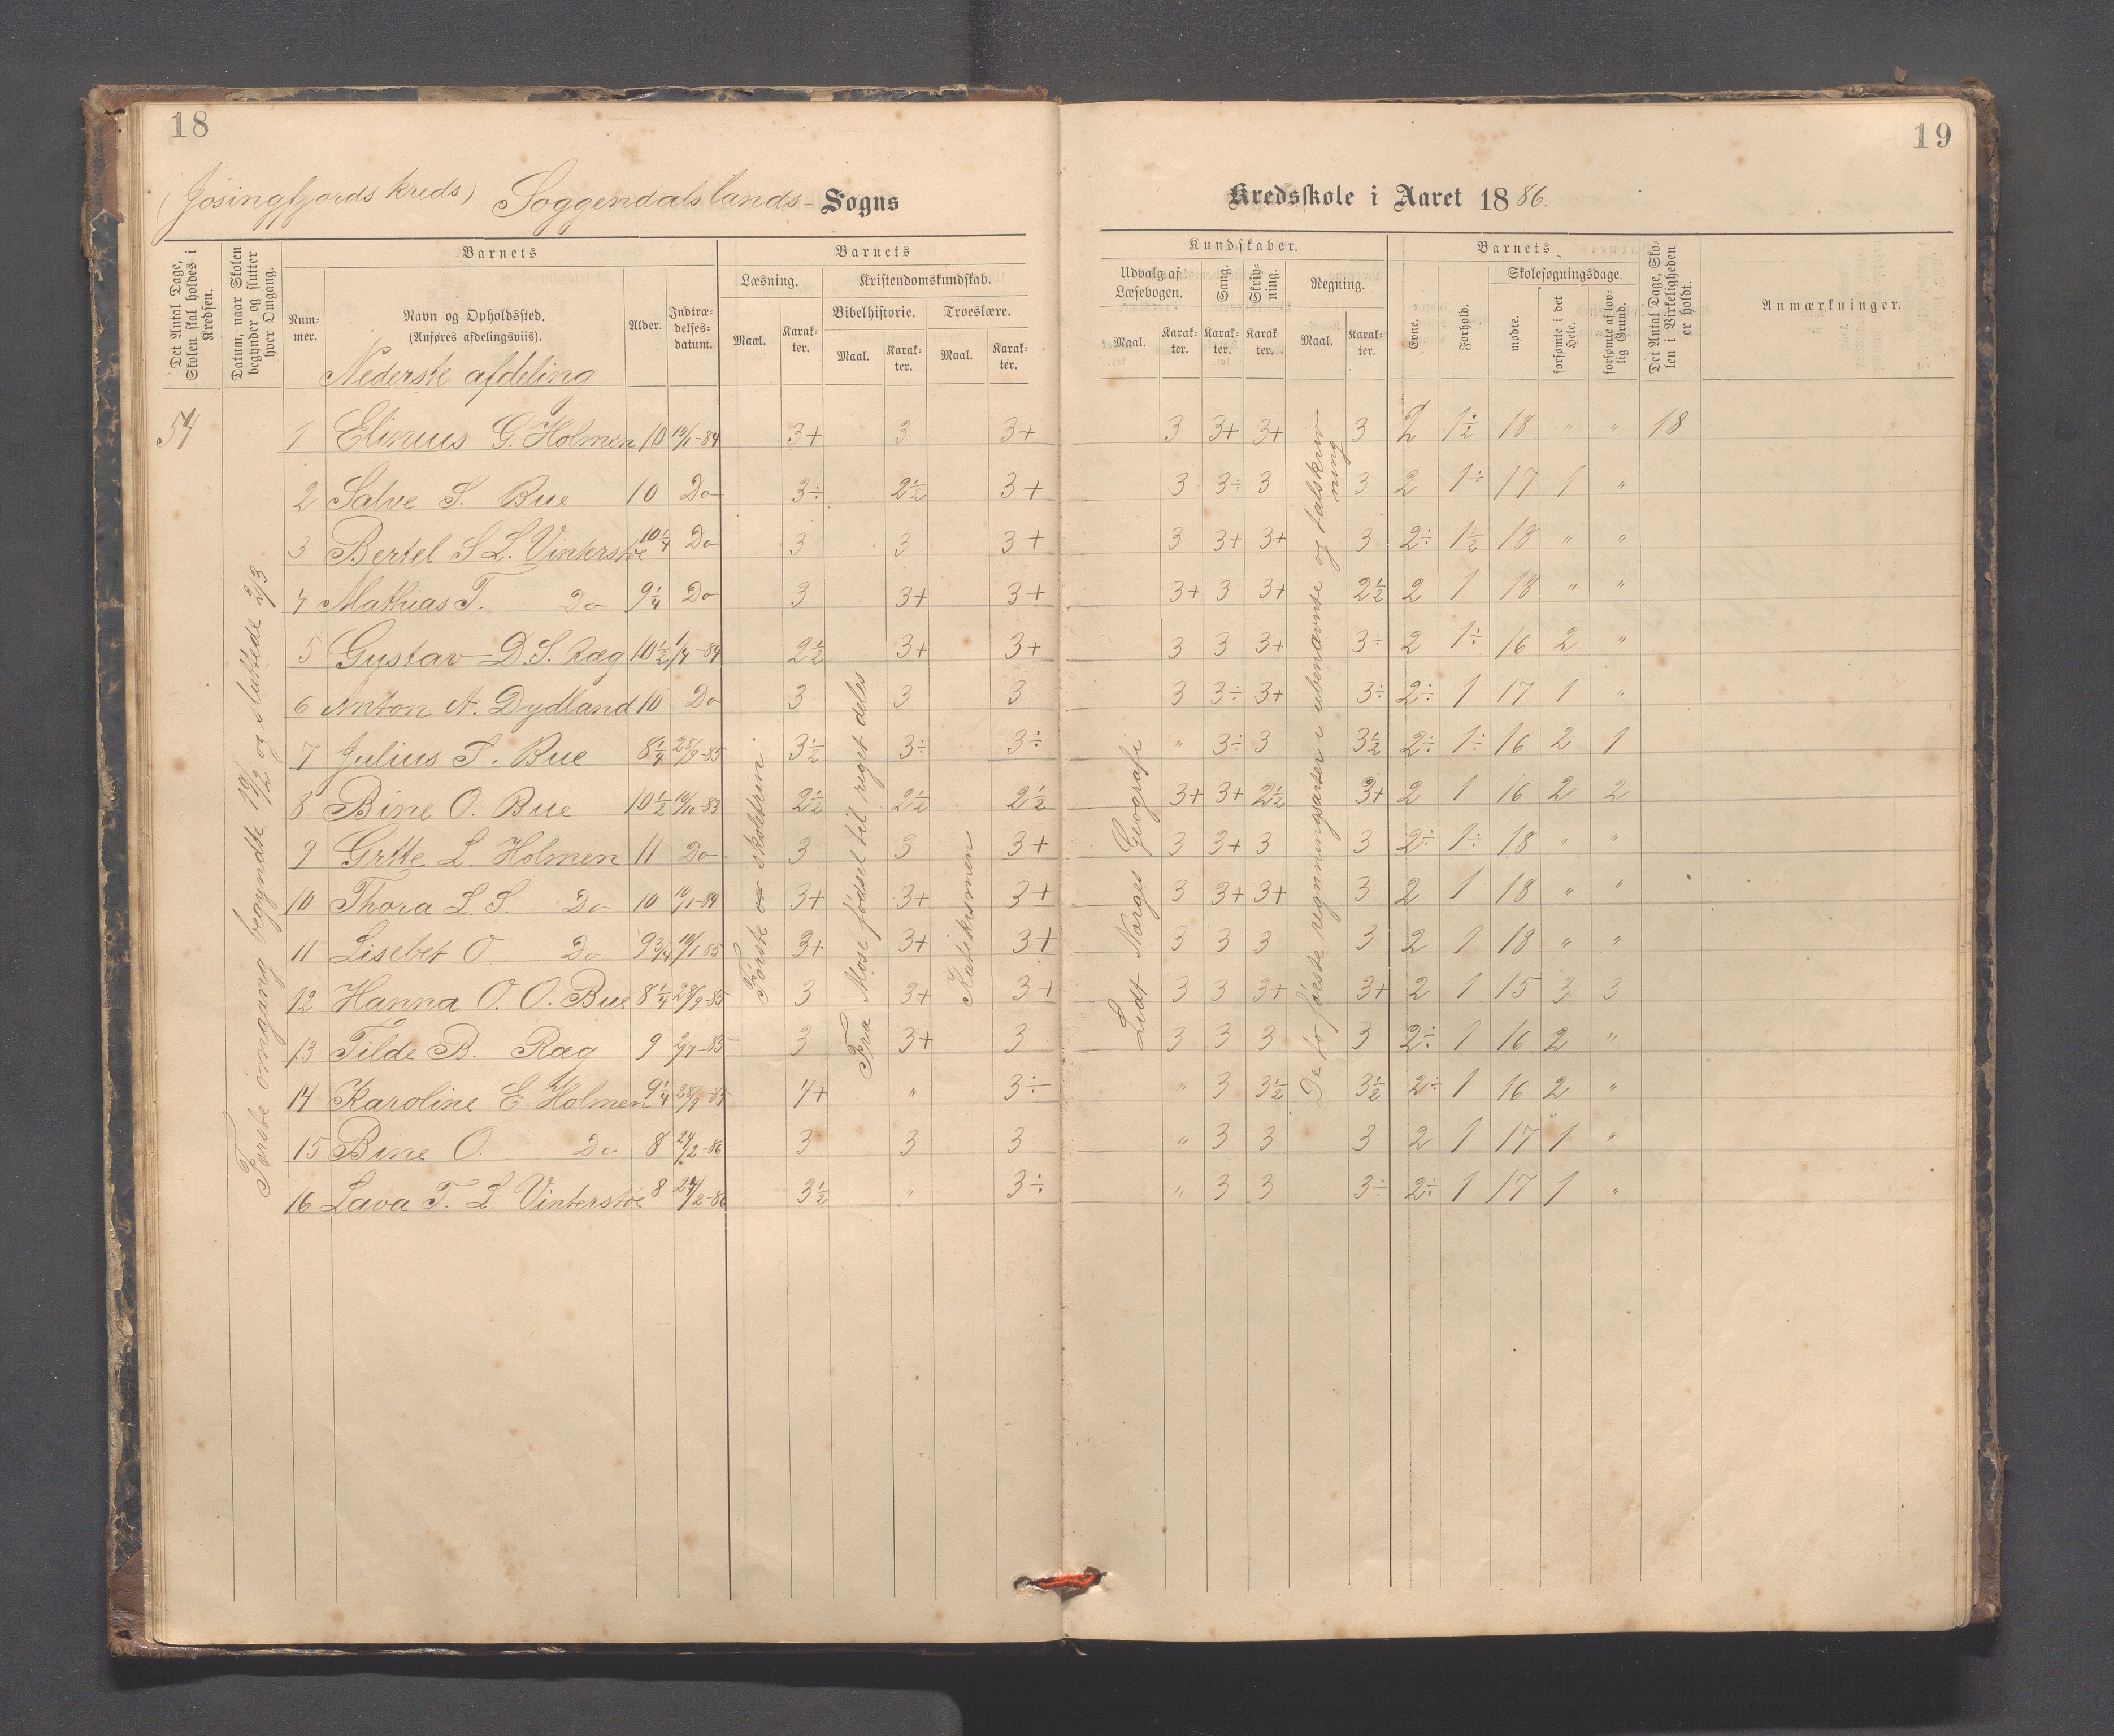 18
(Jøsingfjords kreds) Soggendals lands- Sogns
Det Antal Dage, Skolen skal holdes i Kredsen.
Datum, naar Skolen begynder og slutter hver Omgang.
Barnets
Num-mer.
Navn og Opholdssted.
(Anføres afdelingsviis).
Alder.
Indtræ-delses-datum.
Barnets
Læsning.
Kristendomskundskab.
Bibelhistorie.
Troeslære.
Maal.
Karak-ter.
Maal.
Karak-ter.
Maal.
Karak-ter.
Nederste afdeling
54
Første omgang begyndte 10/2 og sluttede 2/3
1 Elinius G. Holmen 10 10/1-84 3+ 3 3+
2 Salve S. Bue 10 Do 3÷ 2½ 3+
3 Bertel S L. Vinterstøe 10¼ Do 3 3 3+
4 Mathias T. Do 9¼ Do 3 3+ 3+
5 Gustav D. S. Ræg 10½ 1/4-84 2½ 3+ 3+
6 Anton A. Dydland 10 Do 3 3 3
7 Julius S. Bue 8¼ 28/9-85 3½ 3÷ 3÷
8 Bine O. Bue 10½ 10/10-83 2½ 2½ 2½
9 Gitte L. Holmen 11 Do 3 3 3+
10 Thora L. S. Do 10 10/1-84 3+ 3+ 3+
11 Lisebet O. Do 9¾ 10/1-85 3+ 3+ 3+
12 Hanna O. O. Bue 8¼ 28/9-85 3 3+ 3+
13 Tilde B. Ræg 9 2/7-85 3 3+ 3
14 Karoline E. Holmen 9¼ 28/9-85 4+ " 3÷
15 Bine O. Do 8 24/2-86 3 3 3
16 Lava T. L. Vinterstøe 8 24/2-86 3½ " 3÷
Første skoletrin
Fra Mose fødsel til riget deles
Katekismen
19
Kredsskole i Aaret 1886.
Kundskaber.
Udvalg af Læsebogen.
Sang.
Skriv-ning.
Regning.
Maal.
Karak-ter.
Karak-ter.
Karak-ter.
Maal.
Karak-ter.
Barnets
Evne.
Forhold.
Skolesøgningsdage.
mødte.
forsømte i det Hele.
forsømte af lov-lig Grund.
Det Antal Dage, Sko-len i Virkeligheden er holdt.
Anmærkninger.
3 3+ 3+ 3 2 1½ 18 " " 18
3 3÷ 3 3 2 1÷ 17 1 "
3 3+ 3+ 3 2÷ 1½ 18 " "
3+ 3 3+ 2½ 2 1 18 " "
3 3 3+ 3÷ 2 1÷ 16 2 "
3 3÷ 3+ 3÷ 2÷ 1 17 1 "
" 3÷ 3 3½ 2÷ 1÷ 16 2 1
3+ 3+ 2½ 3+ 2 1 16 2 2
3 3+ 3 3 2÷ 1÷ 18 " "
3 3+ 3+ 3 2 1 18 " "
3 3 3 3 2 1 18 " "
3 3 3+ 3+ 2 1 15 3 3
3 3 3 3 2÷ 1 16 2 "
" 3 3½ 3½ 2÷ 1 16 2 "
" 3 3 3 2 1 17 1 "
" 3 3 3÷ 2÷ 1 17 1 "
Lidt Norges Geografi
De to første regningsarter i ubenævnte og talskriv-
ning